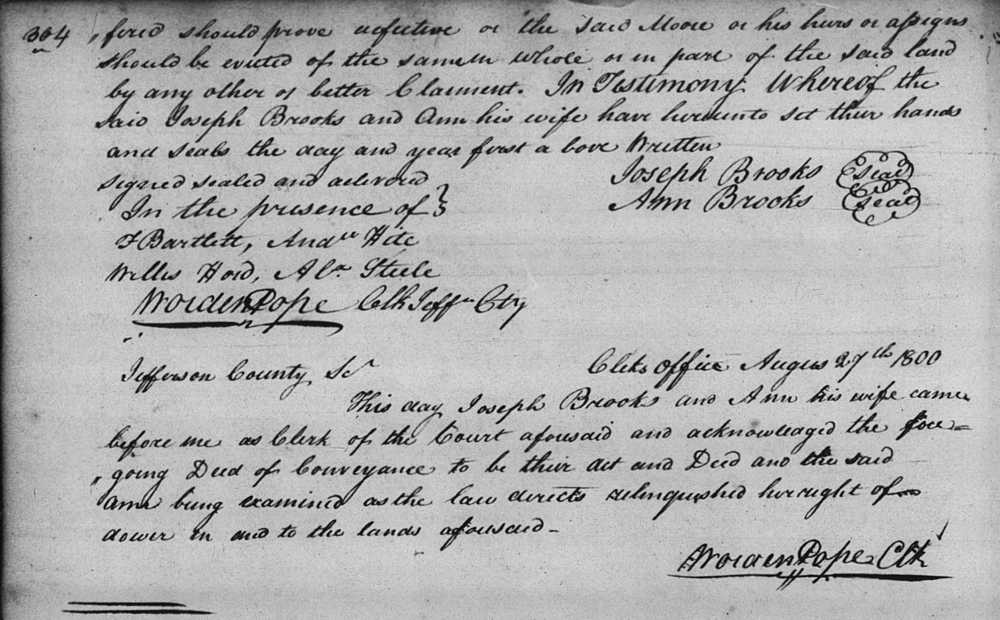 304 , fered should prove defective or the said Moore or his heirs or assigns
should be evicted of the same in whole or in part of the said land
by any other or better Claiment. In Testimony Whereof the
said Joseph Brooks and Ann his wife have hereunto set their hands
and seals the day and year first a bove Written
signed sealed and delivered
Joseph Brooks Seal
In the presence of }
Ann Brooks Seal
F Bartlett, Andw Hite
Willis Hord, Alxr Steele
Worden Pope Clk Jeffn Cty
Jefferson County Sct
Clerks Office Augus 27th 1800
This day Joseph Brooks and Ann his wife came
before me as Clerk of the Court aforesaid and acknowledged the fore=
, going Deed of Conveyance to be their Act and Deed and the said
Ann being examined as the law directs relinquished her right of
dower in and to the lands aforesaid -
Worden Pope Clk